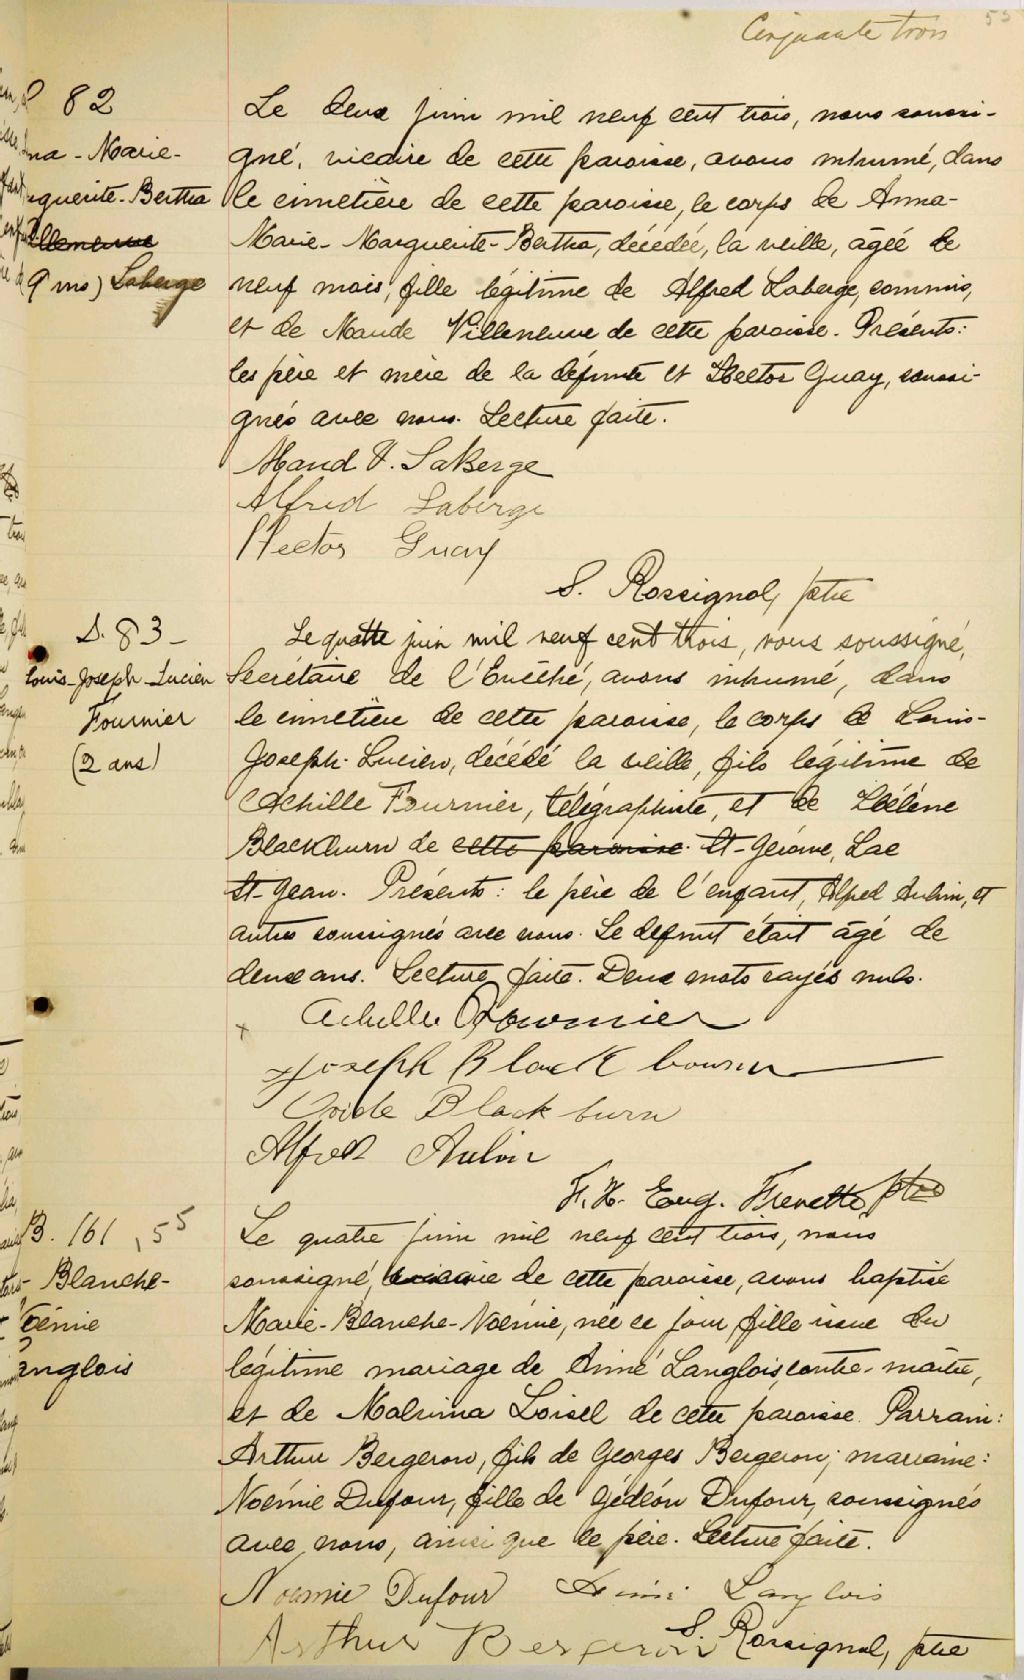 Cinquante trois
53
S. 82
Anna-Marie-
Marguerite-Bertha
Villeneuve
(9 ms) Laberge
Le deux juin mil neuf cent trois, nous soussi-
gné, vicaire de cette paroisse, avons inhumé, dans
le cimetière de cette paroisse, le corps de Anna-
Marie-Marguerite-Bertha, décédée, la veille, âgée de
neuf mois, fille légitime de Alfred Laberge, commis,
et de Maude Villeneuve de cette paroisse. Présents:
les père et mère de la défunte et Hector Guay, soussi-
gnés avec nous. Lecture faite.
Maud V. LaBerge
Alfred Laberge
Hector Guay
S. Rossignol, ptre
S. 83-
Louis-Joseph-Lucien
Fournier
(2 ans)
Le quatre juin mil neuf cent trois, nous soussigné,
Secrétaire de l'Evêché, avons inhumé, dans
le cimetière de cette paroisse, le corps de Louis-
Joseph-Lucien, décédé la veille, fils légitime de
Achille Fournier, télégraphiste, et de Hélène
Blackburn de cette paroisse. St-Gérôme, Lac
St-Jean. Présents: le père de l'enfant, Alfred Aubin, et
autres soussignés avec nous. Le défunt était âgé de
deux ans. Lecture faite. Deux mots rayés nuls.
Achille Fournier
x Joseph Black bourn
Ovide Black burn
Alfred Aubin
F. X. Eug. Frenette ptre
B. 161 , 55
Blanche-
Noémie
Langlois
Le quatre juin mil neuf cent trois, nous
soussigné, vicaire de cette paroisse, avons baptisé
Marie-Blanche-Noémie, née ce jour, fille issue du
légitime mariage de Aimé Langlois, contre-maître,
et de Malvina Loisel de cette paroisse. Parrain:
Arthur Bergeron, fils de Georges Bergeron; marraine:
Noémie Dufour, fille de Gédéon Dufour, soussignés
avec nous, ainsi que le père. Lecture faite.
Noémie Dufour Aimé Langlois
Arthur Bergeron S. Rossignol, ptre